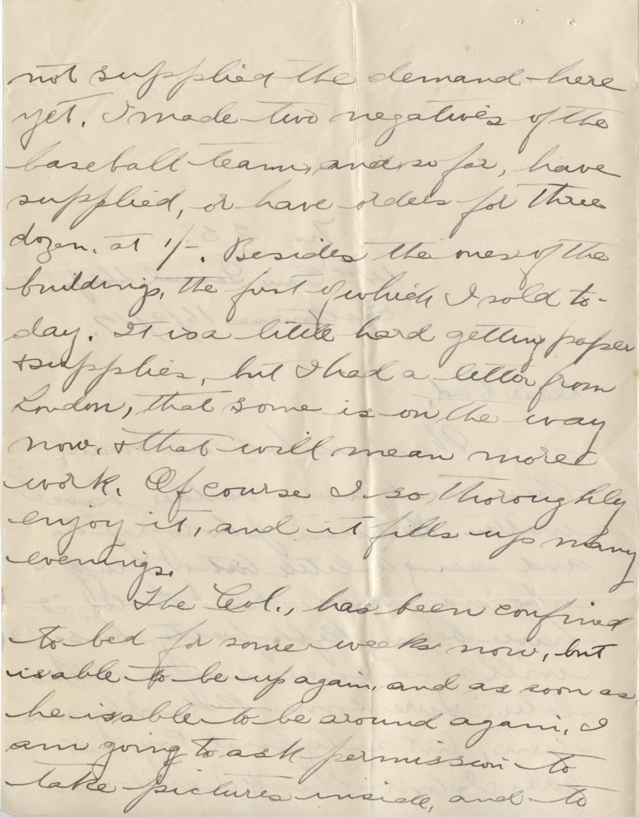 not supplied the demand here
yet. I made two negatives of the
baseball team, and so far, have
supplied, or have orders for three
dozen. at 1/-. Besides the ones of the
buildings, the first of which I sold to-
day. It is a little hard getting paper
& supplies, but I had a letter from
London, that some is on the way
now. & that will mean more
work. Of course I so thoroughly
enjoy it, and it fills up many
evenings.
The Col., has been confined
to bed for some weeks now, but
is able to be up again, and as soon as
he is able to be around again, I
am going to ask permission to
take pictures inside, and to